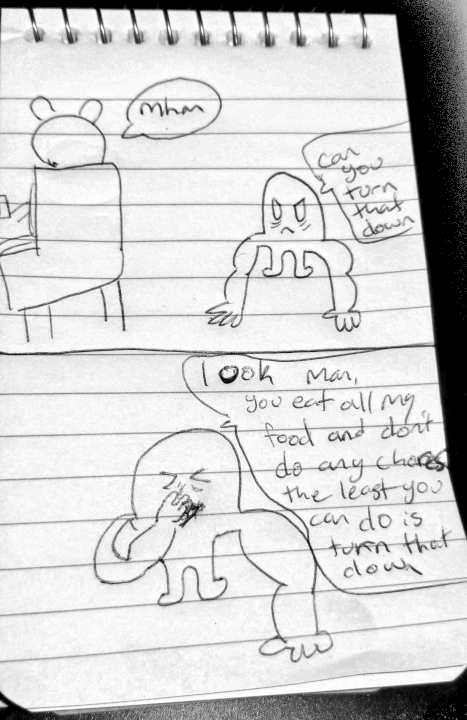 mhm
can
you
turn
that
down
look man,
you eat all my
food and don't
do any chores
the least you
can do is
turn that
down